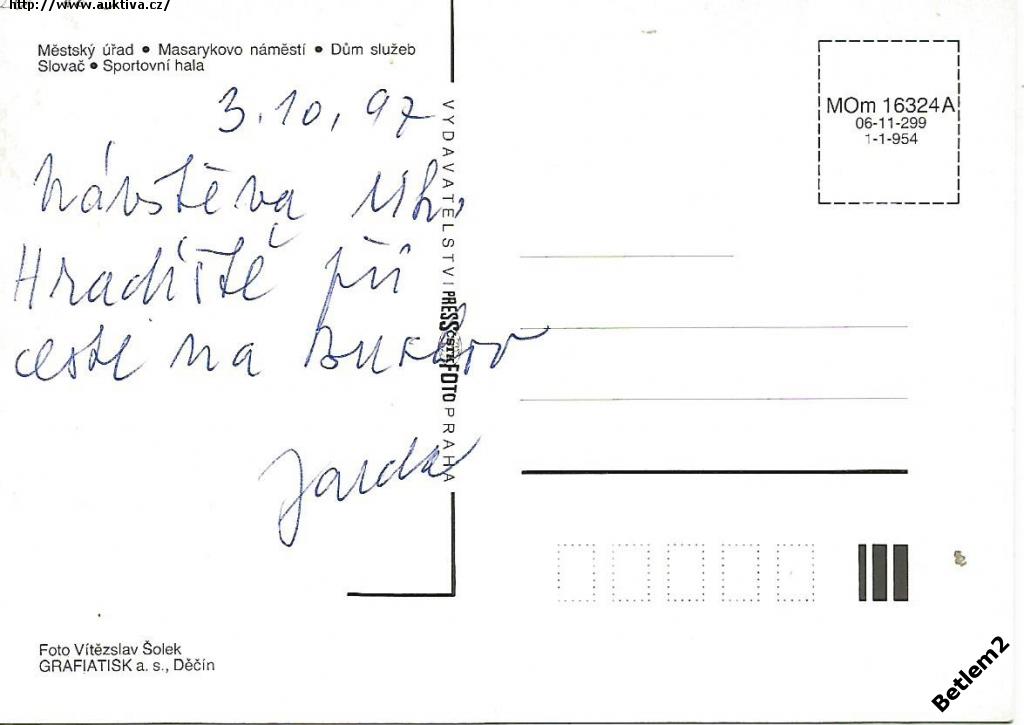 http://www.auktiva.cz/
Městský úřad • Masarykovo náměstí • Dům služeb
Slovač • Sportovní hala
3.10,97
Návštěva Uh.
Hradiště při
cestě na Buchlov
Jarda
VYDAVATELSTVÍ PRESSFOTO PRAHA
MOm 16324A
06-11-299
1-1-954
Foto Vítězslav Šolek
GRAFIATISK a. s., Děčín
Betlem2